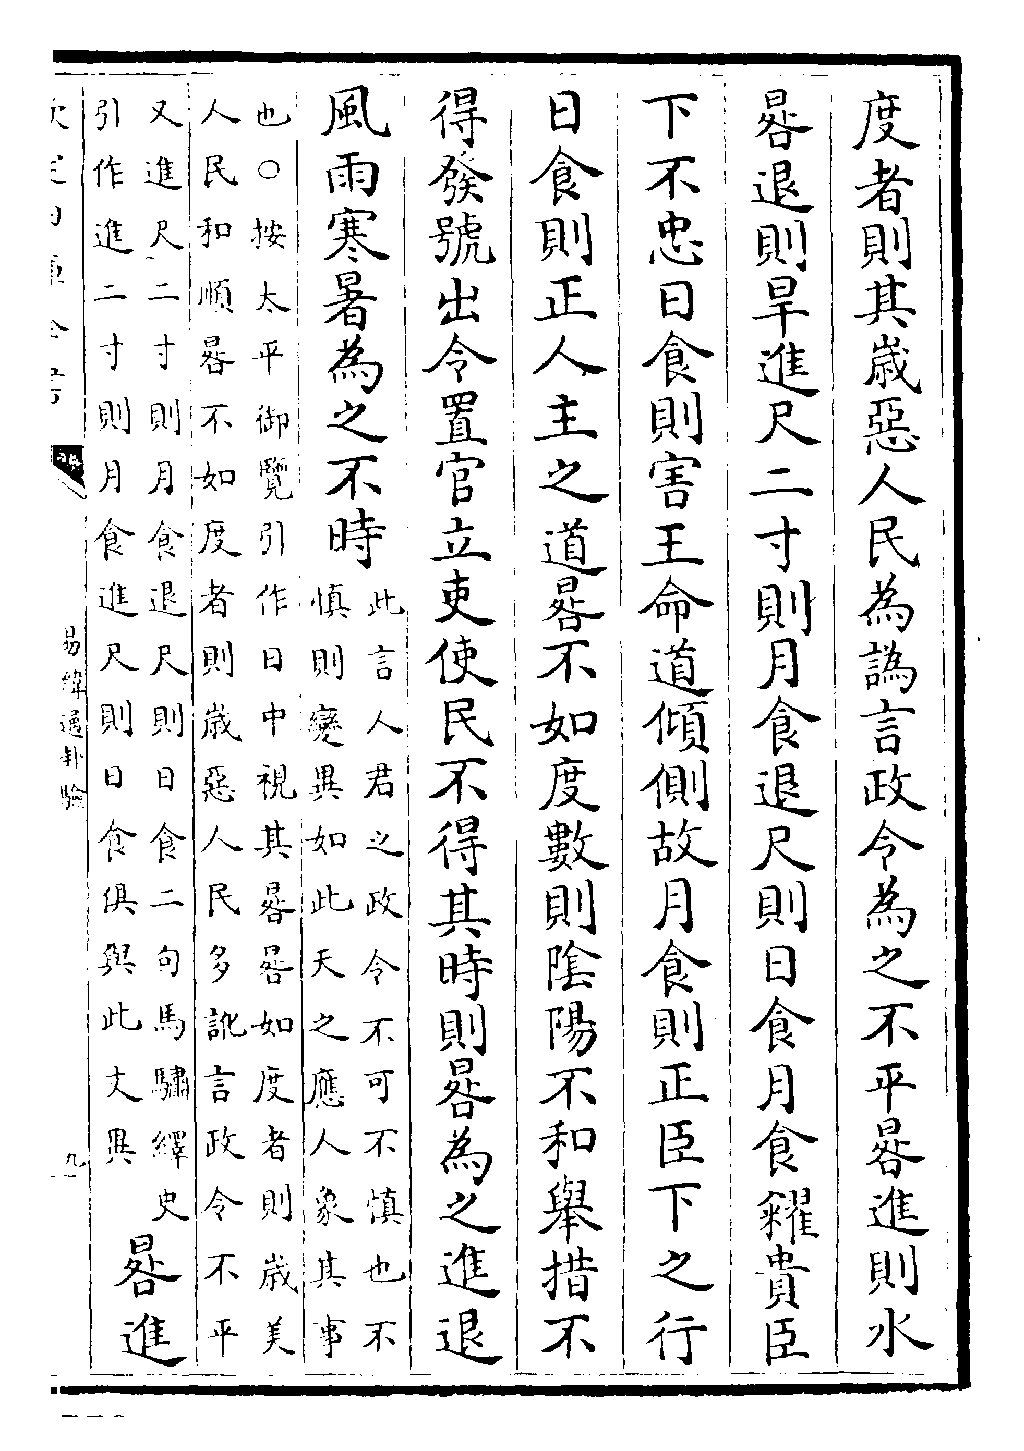 度者則其歳惡人民為譌言政令為之不平晷進則水
晷退則旱進尺二寸則月食退尺則日食月食糴貴臣
下不忠日食則害王命道傾側故月食則正臣下之行
日食則正人主之道晷不如度數則陰陽不和舉措不
得發號出令置官立吏使民不得其時則晷為之進退
風雨寒暑為之不時
此言人君之政令不可不慎也不
慎則變異如此天之應人象其事
也○按太平御覽引作日中視其晷晷如度者則歳美
人民和順晷不如度者則歳惡人民多訛言政令不平
又進尺二寸則月食退尺則日食二句馬驌繹史
引作進二寸則月食進尺則日食俱與此文異
晷進
易緯通卦驗
九